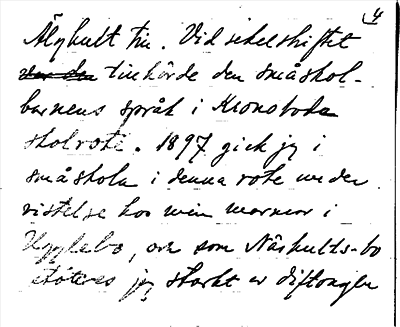 4
Älghult tie. Vid sekelskiftet
var den tillhörde den småskol-
barnens språk i Kronoboda
skolrote. 1897 gick jag i
småskola i denna rote under
vistelse hos min mormor i
Ugglebo, och som Näshults-bo
stöttes jag starkt av diftongen